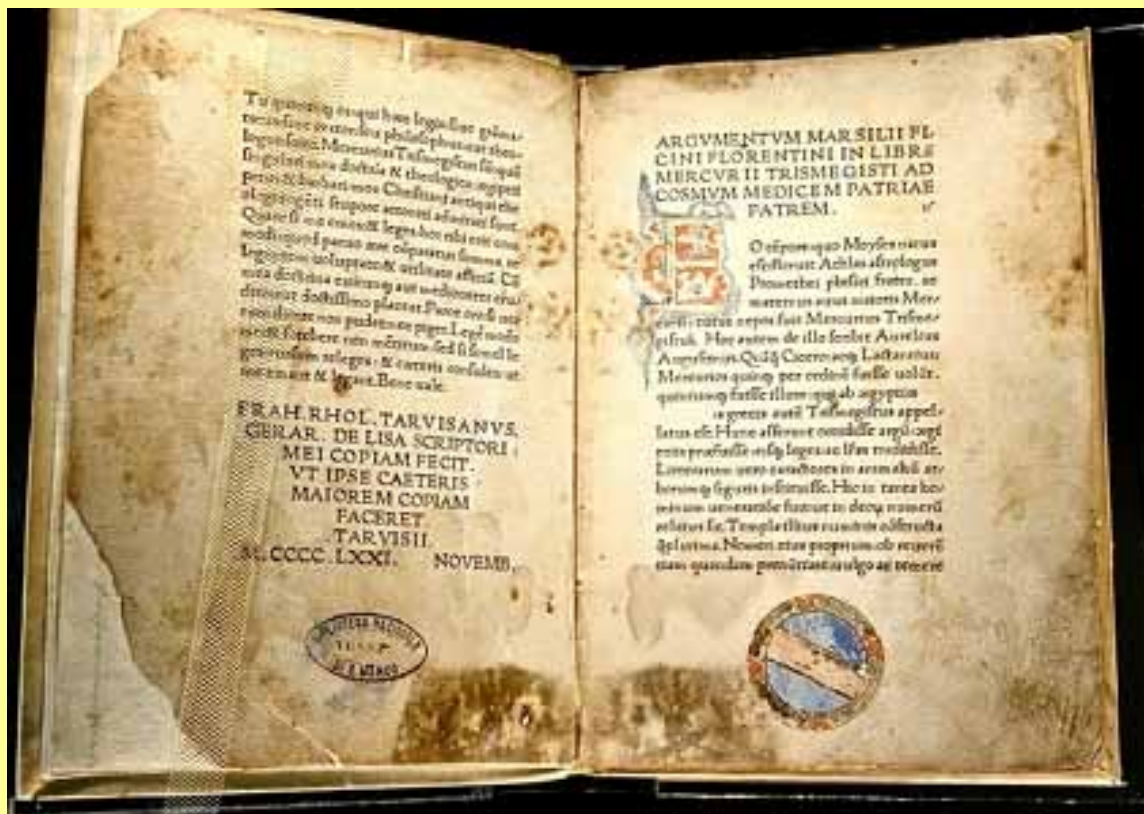 Tu quicunq es qui hæc legis, siue gramma-
ticus siue orator siue philosophus aut theo-
logus scito. Mercurius Trismegistus sum quē
singulari mea doctrina & theologica ægyptii
prius & barbari mox Christiani antiqui the-
ologi stupore attoniti admirati sunt.
Quare si me emes & leges hoc tibi erit com
modi quod paruo ære cōparatus summa te
legentem uoluptate & utilitate afficiā. Cū
mea doctrina cuicunq aut mediocriter eru
dito aut doctissimo placeat. Parce oro si uerū
non dicere non pudet me piget. Lege modo
me & fatebere non mētitum sed si semel le
ges rursum releges & cæteris consules ut
me emant & legant. Bene uale.
FRAN. RHOL. TARVISANVS.
GERAR. DE LISA SCRIPTORI:
MEI COPIAM FECIT.
VT IPSE CAETERIS
MAIOREM COPIAM
FACERET
TARVISII
M. CCCC. LXXI. NOVEMB.
BIBLIOTECA NACIONAL
DE MEXICO
ARGVMENTVM MARSILII FI
CINI FLORENTINI IN LIBRE
MERCVRII TRISMEGISTI AD
COSMVM MEDICEM PATRIAE
PATREM.
O tēpore quo Moyses natus
est floruit Athlas astrologus
Promethei physici frater. ac
maternus auus maioris Mer-
curii: cuius nepos fuit Mercurius Trisme-
gistus. Hoc autem de illo scribit Aurelius
Augustinus. Quāq Cicero atq Lactantius
Mercurios quinq per ordinē fuisse uolūt.
quintumq fuisse illum qui ab ægyptiis
a grecis autē Trismegistus appel-
latus est. Hunc asserunt occidisse argū: ægi
ptiis præfuisse eisq leges ac lras tradidisse.
Litterarum uero caracteres in animaliū ar-
borumq figuris instituisse. Hic in tanta ho-
minum ueneratiōe fuit ut in deoꝝ numerū
relatus sit. Templa illius numine cōstructa
q̄plurima. Nomen eius proprium ob reuerē
tiam quandam pronūtiare uulgo ac temere